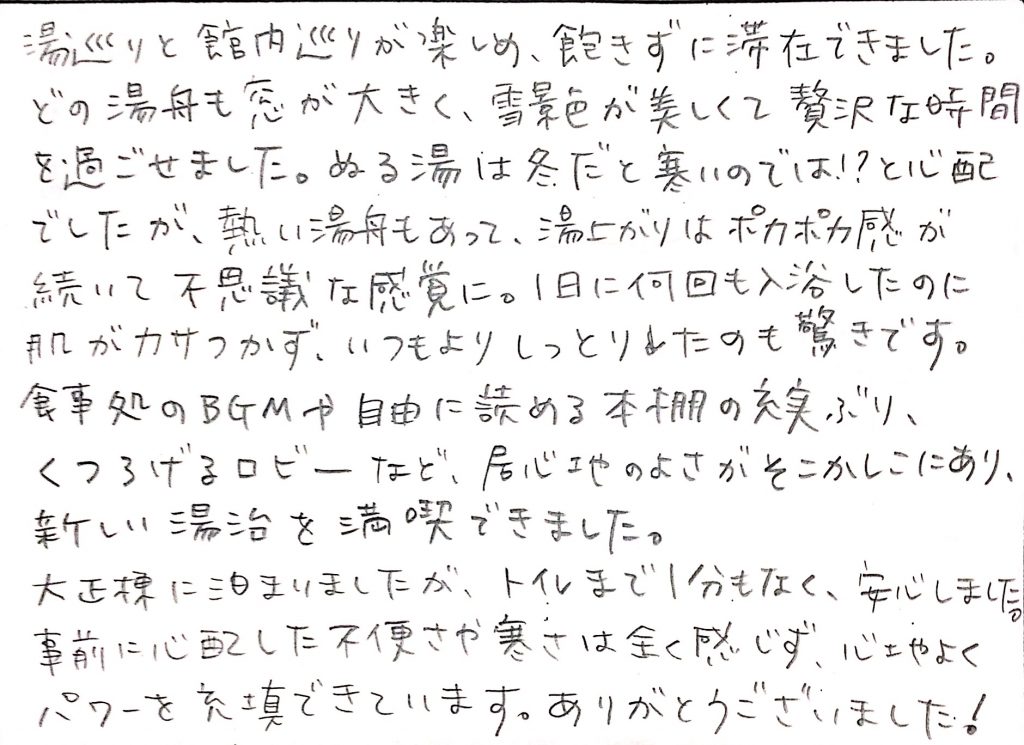 湯巡りと館内巡りが楽しめ、飽きずに滞在できました。
どの湯舟も窓が大きく、雪景色が美しくて贅沢な時間
を過ごせました。ぬる湯は冬だと寒いのでは!?と心配
でしたが、熱い湯舟もあって、湯上がりはポカポカ感が
続いて不思議な感覚に。1日に何回も入浴したのに
肌がカサつかず、いつもよりしっとりしたのも驚きです。
食事処のBGMや自由に読める本棚の充実ぶり、
くつろげるロビーなど、居心地のよさがそこかしこにあり、
新しい湯治を満喫できました。
大正棟に泊まりましたが、トイレまで1分もなく、安心しました。
事前に心配した不便さや寒さは全く感じず、心地よく
パワーを充填できています。ありがとうございました!